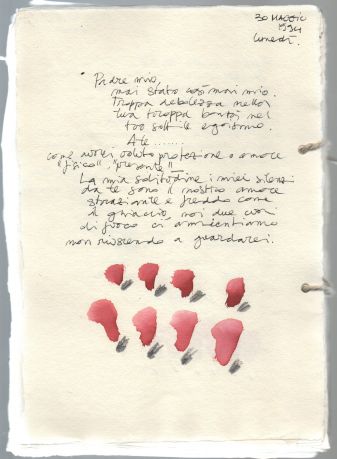 30 MAGGIO
1994
lunedì.
Padre mio,
mai stato così mai mio.
Troppa debolezza nella
tua troppa bontà nel
tuo egoismo.
A te .......
come avrei voluto protezione o amore
"fisico". "presente"
La mia solitudine i miei silenzi
da te sono il nostro amore
straziante e freddo come
il ghiaccio, noi due cuori
di fuoco ci annientiamo
non riuscendo a guardarci.